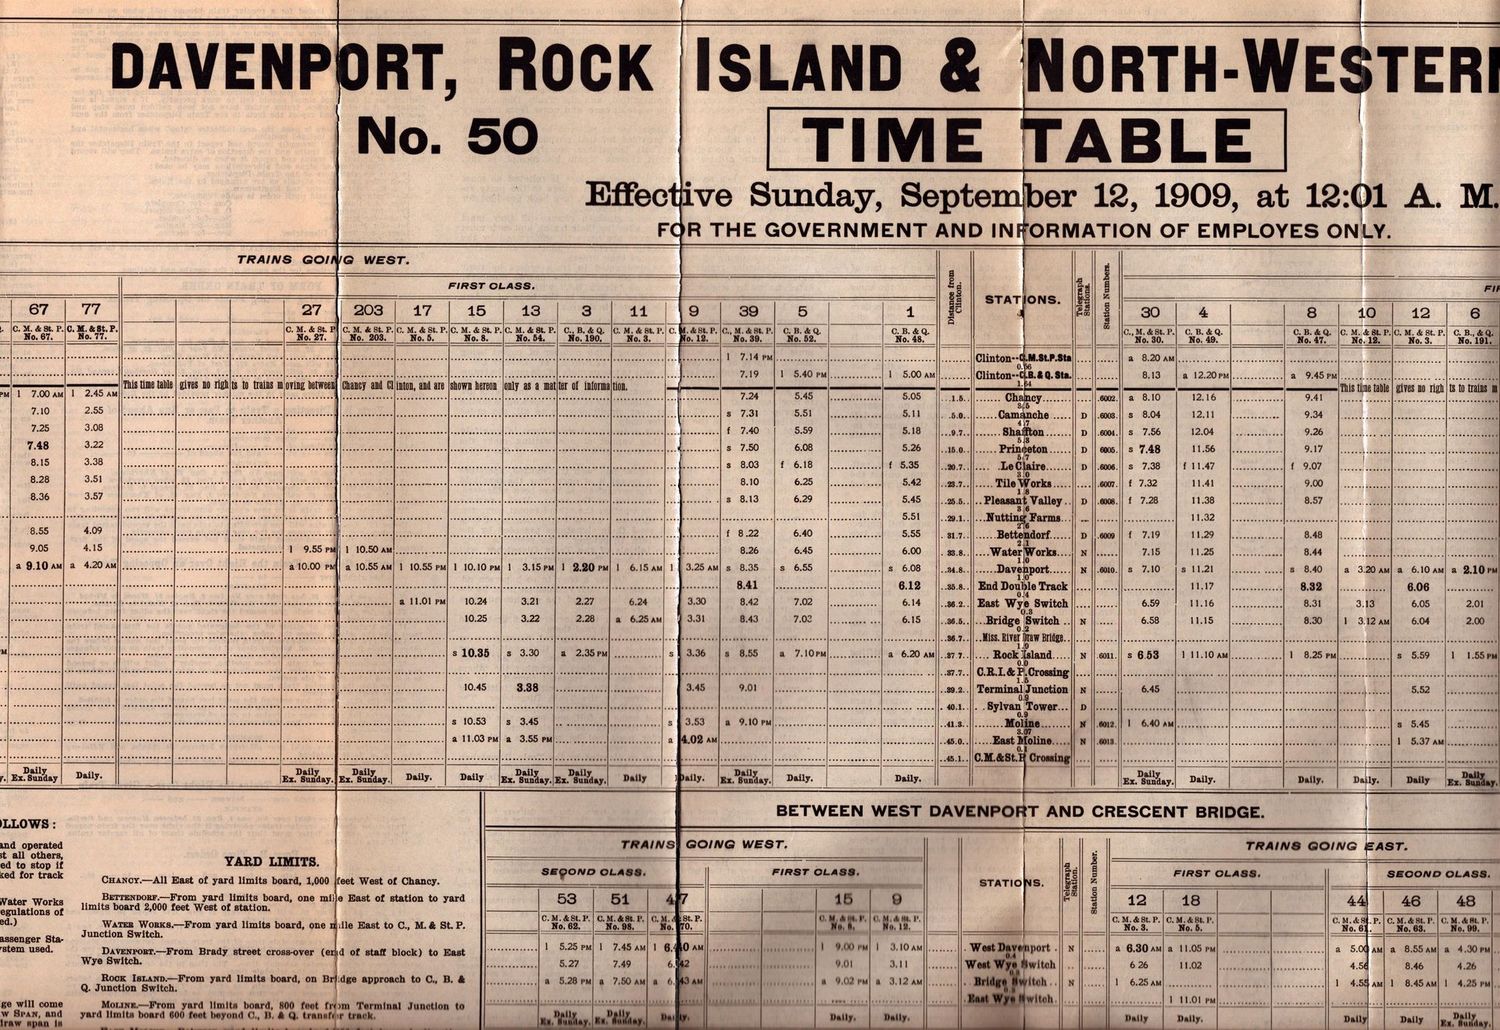 DAVENPORT, ROCK ISLAND & NORTH-WESTERN
No. 50 TIME TABLE
Effective Sunday, September 12, 1909, at 12:01 A. M.
FOR THE GOVERNMENT AND INFORMATION OF EMPLOYES ONLY.
TRAINS GOING WEST.
FIRST CLASS.
Distance from Clinton.
STATIONS.
Telegraph Stations.
Station Numbers.
67 77 27 203 17 15 13 3 11 9 39 5 1 30 4 8 10 12 6
C. M. & St. P. C. M. & St. P. C. M. & St. P. C. M. & St. P. C. M. & St. P. C. M. & St. P. C. M. & St. P. C., B. & Q. C. M. & St. P. C. M. & St. P. C., M. & St. P. C. B. & Q. C. B. & Q. C., M. & St. P. C. B. & Q. C. B. & Q. C. M. & St. P. C. M. & St. P. C. B. & Q.
No. 67. No. 77. No. 27. No. 203. No. 5. No. 8. No. 54. No. 190. No. 3. No. 12. No. 39. No. 52. No. 48. No. 30. No. 49. No. 47. No. 12. No. 3. No. 191.
l 7.14 PM Clinton--C.M.St.P.Sta a 8.20 AM
0.56
7.19 l 5.40 PM l 5.00 AM Clinton--C.B.&Q. Sta. 8.13 a 12.20 PM a 9.45 PM
1.54
This time table gives no rights to trains moving between Chancy and Clinton, and are shown hereon only as a matter of information. This time table gives no rights to trains m
l 7.00 AM l 2.45 AM 7.24 5.45 5.05 1.5 Chancy 6002. a 8.10 12.16 9.41
3.5
7.10 2.55 s 7.31 5.51 5.11 5.0 Camanche D 6003. s 8.04 12.11 9.34
4.7
7.25 3.08 f 7.40 5.59 5.18 9.7 Shaffton D 6004. s 7.56 12.04 9.26
5.3
7.48 3.22 s 7.50 6.08 5.26 15.0 Princeton D 6005. s 7.48 11.56 9.17
5.7
8.15 3.38 s 8.03 f 6.18 f 5.35 20.7 Le Claire D 6006. s 7.38 f 11.47 f 9.07
3.0
8.28 3.51 8.10 6.25 5.42 23.7 Tile Works 6007. f 7.32 11.41 9.00
1.8
8.36 3.57 s 8.13 6.29 5.45 25.5 Pleasant Valley D 6008. f 7.28 11.38 8.57
3.6
5.51 29.1 Nutting Farms 11.32
2.6
8.55 4.09 f 8.22 6.40 5.55 31.7 Bettendorf D 6009 f 7.19 11.29 8.48
2.1
9.05 4.15 l 9.55 PM l 10.50 AM 8.26 6.45 6.00 33.8 Water Works N 7.15 11.25 8.44
1.0
a 9.10 AM a 4.20 AM a 10.00 PM a 10.55 AM l 10.55 PM l 10.10 PM l 3.15 PM l 2.20 PM l 6.15 AM l 3.25 AM s 8.35 s 6.55 s 6.08 34.8 Davenport N 6010. s 7.10 s 11.21 s 8.40 a 3.20 AM a 6.10 AM a 2.10 PM
1.0
8.41 6.12 35.8 End Double Track 11.17 8.32 6.06
0.4
a 11.01 PM 10.24 3.21 2.27 6.24 3.30 8.42 7.02 6.14 36.2 East Wye Switch 6.59 11.16 8.31 3.13 6.05 2.01
0.3
10.25 3.22 2.28 a 6.25 AM 3.31 8.43 7.03 6.15 36.5 Bridge Switch N 6.58 11.15 8.30 l 3.12 AM 6.04 2.00
0.2
36.7 Miss. River Draw Bridge
1.0
s 10.35 s 3.30 a 2.35 PM s 3.36 s 8.55 a 7.10 PM a 6.20 AM 37 7 Rock Island N 6011. s 6.53 l 11.10 AM l 8.25 PM s 5.59 l 1.55 PM
0.0
37.7 C.R.I.& P. Crossing
1.5
10.45 3.38 3.45 9.01 39.2 Terminal Junction N 6.45 5.52
0.9
40.1 Sylvan Tower D
0.9
s 10.53 s 3.45 s 3.53 a 9.10 PM 41.3 Moline N 6012. l 6.40 AM s 5.45
3.07
a 11.03 PM a 3.55 PM a 4.02 AM 45.0 East Moline N 6013 l 5.37 AM
0.1
45.1 C.M.&St.P. Crossing
Daily Ex. Sunday Daily. Daily Ex. Sunday. Daily Ex. Sunday Daily. Daily Daily Ex. Sunday. Daily Ex. Sunday. Daily Daily. Daily Ex. Sunday Daily. Daily. Daily Ex. Sunday Daily Daily. Daily. Daily Daily Ex. Sunday.
OLLOWS:
and operated
st all others,
ed to stop if
ked for track
Water Works
egulations of
ed.)
assenger Sta-
stem used.
ge will come
w SPAN, and
draw span is
YARD LIMITS.
CHANCY.—All East of yard limits board, 1,000 feet West of Chancy.
BETTENDORF.—From yard limits board, one mile East of station to yard
limits board 2,000 feet West of station.
WATER WORKS.—From yard limits board, one mile East to C., M. & St. P.
Junction Switch.
DAVENPORT.—From Brady street cross-over (end of staff block) to East
Wye Switch.
ROCK ISLAND.—From yard limits board, on Bridge approach to C., B. &
Q. Junction Switch.
MOLINE.—From yard limits board, 800 feet from Terminal Junction to
yard limits board 600 feet beyond C., B. & Q. transfer track.
BETWEEN WEST DAVENPORT AND CRESCENT BRIDGE.
TRAINS GOING WEST. TRAINS GOING EAST.
SECOND CLASS. FIRST CLASS. STATIONS. Telegraph Station. Station Number. FIRST CLASS. SECOND CLASS.
53 51 47 15 9 12 18 44 46 48
C. M. & St. P. C. M. & St. P. C. M. & St. P. C. M. & St. P. C. M. & St. P. C. M. & St. P. C. M. & St. P. C. M. & St. P. C. M. & St. P. C. M. & St. P.
No. 62. No. 98. No. 70. No. 8. No. 12. No. 3. No. 5. No. 61. No. 63. No. 99.
l 5.25 PM l 7.45 AM l 6.40 AM l 9.00 PM l 3.10 AM West Davenport N a 6.30 AM a 11.05 PM a 5.00 AM a 8.55 AM a 4.30 PM
0.4
5.27 7.49 6.42 9.01 3.11 West Wye Switch 6 26 11.02 4.56 8.46 4.26
a 5.28 PM a 7.50 AM a 6.43 AM a 9.02 PM a 3.12 AM Bridge Switch N l 6.25 AM l 4.55 AM l 8.45 AM l 4.25 PM
East Wye Switch l 11.01 PM
Daily Ex. Sunday. Daily Ex. Sunday. Daily. Daily. Daily. Daily. Daily. Daily Daily Ex. Sunday Daily Ex. Sunday